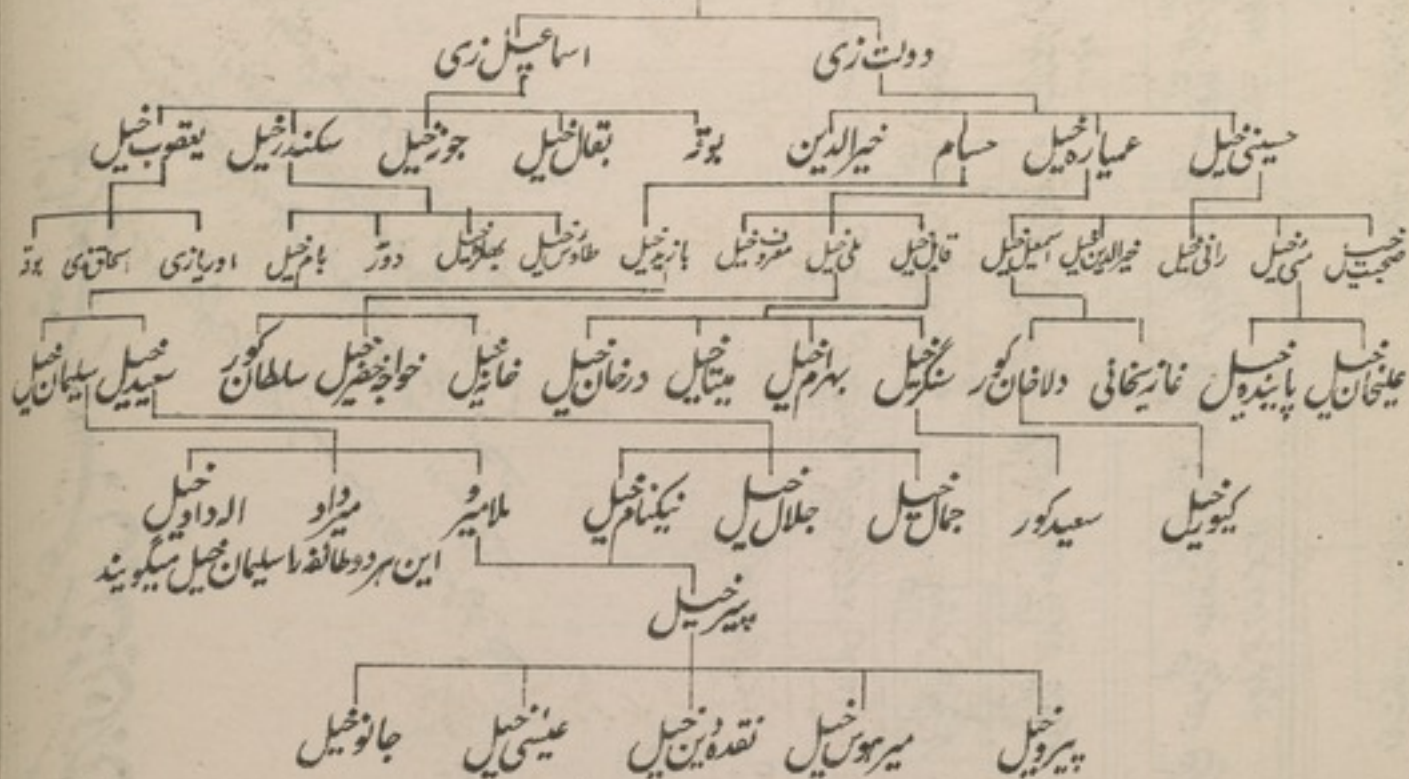 دولت زی اسماعیل زی
حسینی خیل عمیاره خیل حسام خیرالدین بوتر بقال خیل جوزخیل سکندرخیل یعقوب خیل
صحبت خیل منی خیل رانی خیل خیرالدین خیل اسمعیل خیل قابل خیل ملی خیل معروف خیل بازید خیل طاؤس خیل بهلکر خیل دوتر بام خیل اوریازی اسحاق زی بوتر
علیخان خیل پاینده خیل غازیخانی دلاخان کور سنگر خیل بهرام خیل میتا خیل درخان خیل خانی خیل خواجه خضر خیل سلطان کور سعید خیل سلیمان خیل
کیور خیل سعید کور جمال خیل جلال خیل نیکنام خیل ملا میرو میرداد اله داد خیل
این هر دو طائفه را سلیمان خیل میگویند
پیر خیل
پیرو خیل میرهوس خیل نقده دین خیل عیسی خیل جانو خیل